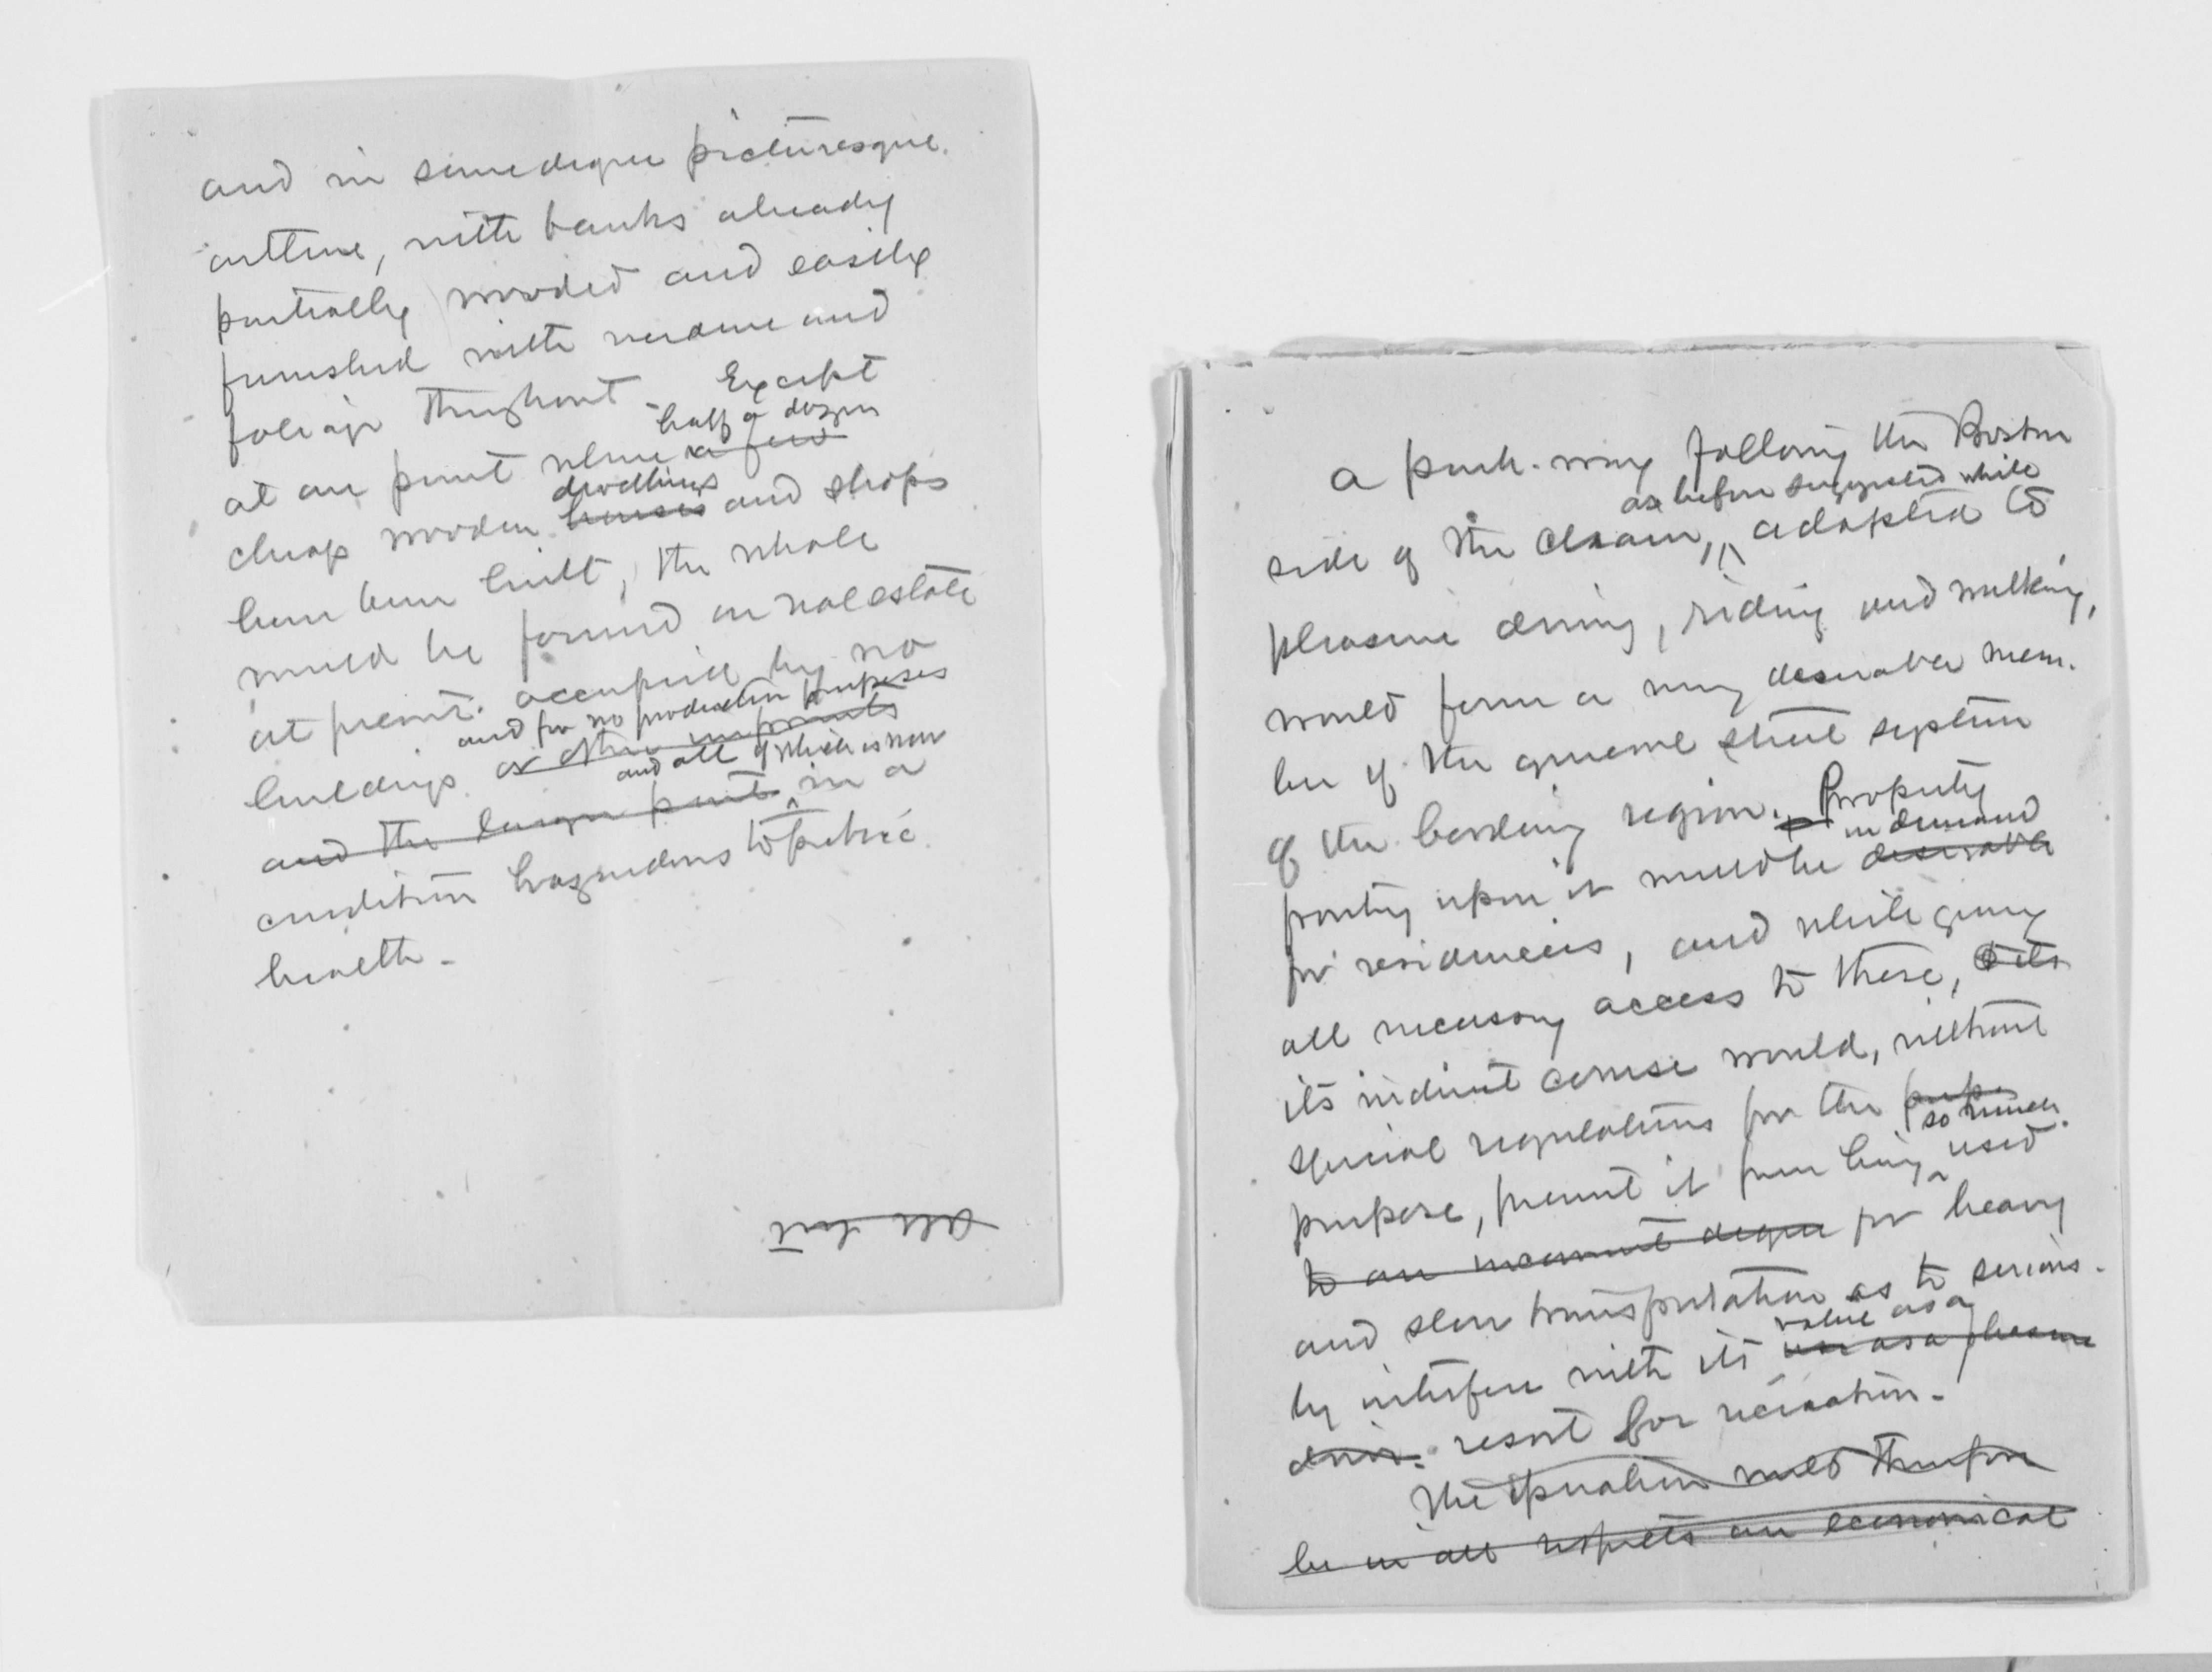 and in some degree picturesque
outline, with banks already
partially wooded and easily
furnished with verdure and
foliage throughout. Except
half a dozen
at one point where a few
dwellings
cheap wooden houses and shops
have been built, the whole
would be formed on real estate
at present occupied by no
and for no productive purposes
buildings or other improvements
and all of which is now
and the larger part in a
condition hazardous to public
health.
all but
A park-way following the Boston
as before suggested while
side of the chain, adapted to
pleasure driving, riding and walking,
would form a very desirable mem-
ber of the general street system
of the bordering region. Property
in demand
fronting upon it would be desirable
for residences, and while giving
all necessary access to these, its
its indirect course would, without
special regulations for the
so much
purpose, prevent it from being used
to an inconvenient degree for heavy
and slow transportation as to serious-
value as a
ly interfere with its use as a pleasure
drive. resort for recreation.
The operation would therefore
be in all respects an economical